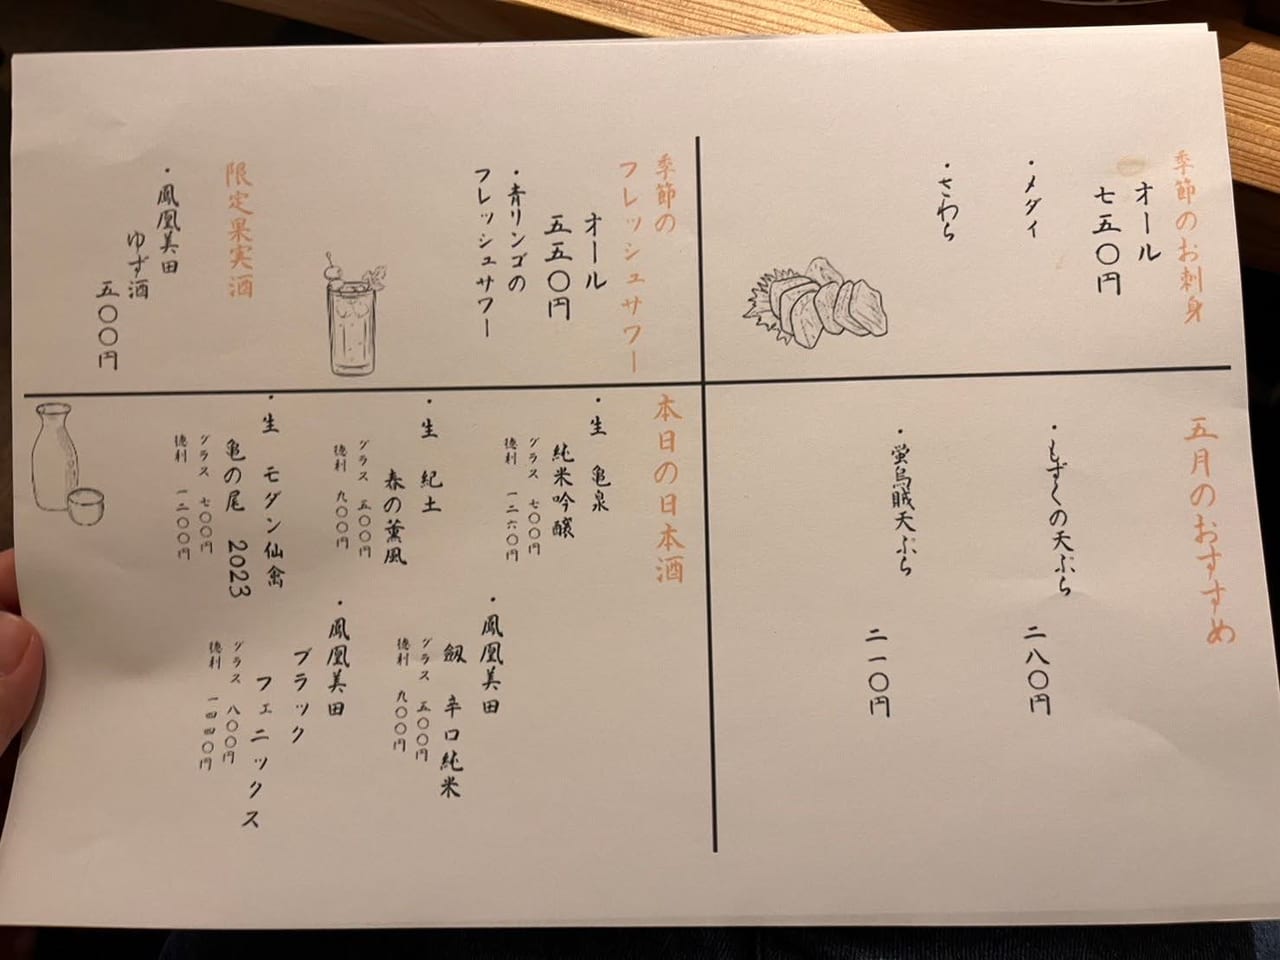 季節のお刺身
オール
七五〇円
・メダイ
・さわら
五月のおすすめ
・もずくの天ぷら 二八〇円
・蛍烏賊天ぷら 二一〇円
季節の
フレッシュサワー
オール
五五〇円
・青リンゴの
フレッシュサワー
限定果実酒
・鳳凰美田
ゆず酒
五〇〇円
本日の日本酒
・生 亀泉
純米吟醸
グラス 七〇〇円
徳利 一二六〇円
・生 紀土
春の薫風
グラス 五〇〇円
徳利 九〇〇円
・生 モダン仙禽
亀の尾 2023
グラス 七〇〇円
徳利 一二〇〇円
・鳳凰美田
剱 辛口純米
グラス 五〇〇円
徳利 九〇〇円
・鳳凰美田
ブラック
フェニックス
グラス 八〇〇円
徳利 一四四〇円